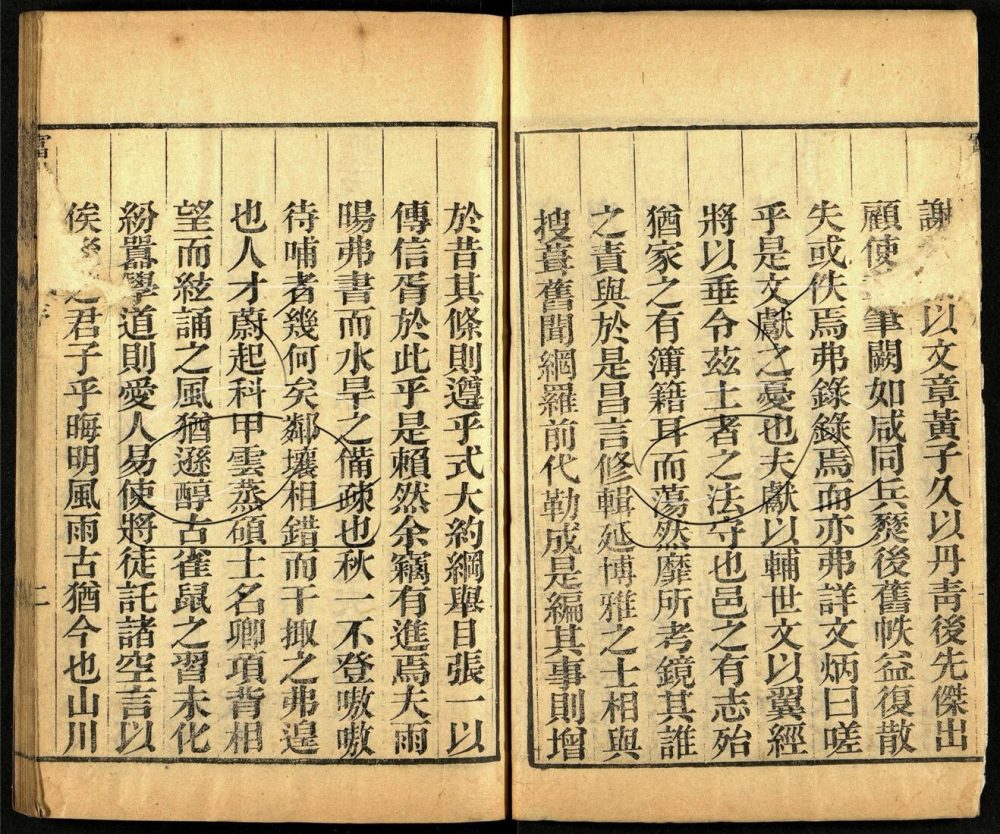 謝以文章黃子久以丹青後先傑出
顧使筆闕如咸同兵燹後舊帙益復散
失或佚焉弗錄錄焉而亦弗詳文炳曰嗟
乎是文獻之憂也夫獻以輔世文以翼經
將以垂令茲土者之法守也邑之有志殆
猶家之有簿籍耳而蕩然靡所考鏡其誰
之責與於是昌言修輯延博雅之士相與
搜葺舊聞網羅前代勒成是編其事則增
於昔其條則遵乎式大約綱舉目張一以
傳信胥於此乎是賴然余竊有進焉夫雨
暘弗書而水旱之備疎也秋一不登嗷嗷
待哺者幾何矣鄰壤相錯而干掫之弗遑
也人才蔚起科甲雲蒸碩士名卿項背相
望而絃誦之風猶遜醇古雀鼠之習未化
紛囂學道則愛人易使將徒託諸空言以
俟之君子乎晦明風雨古猶今也山川
二